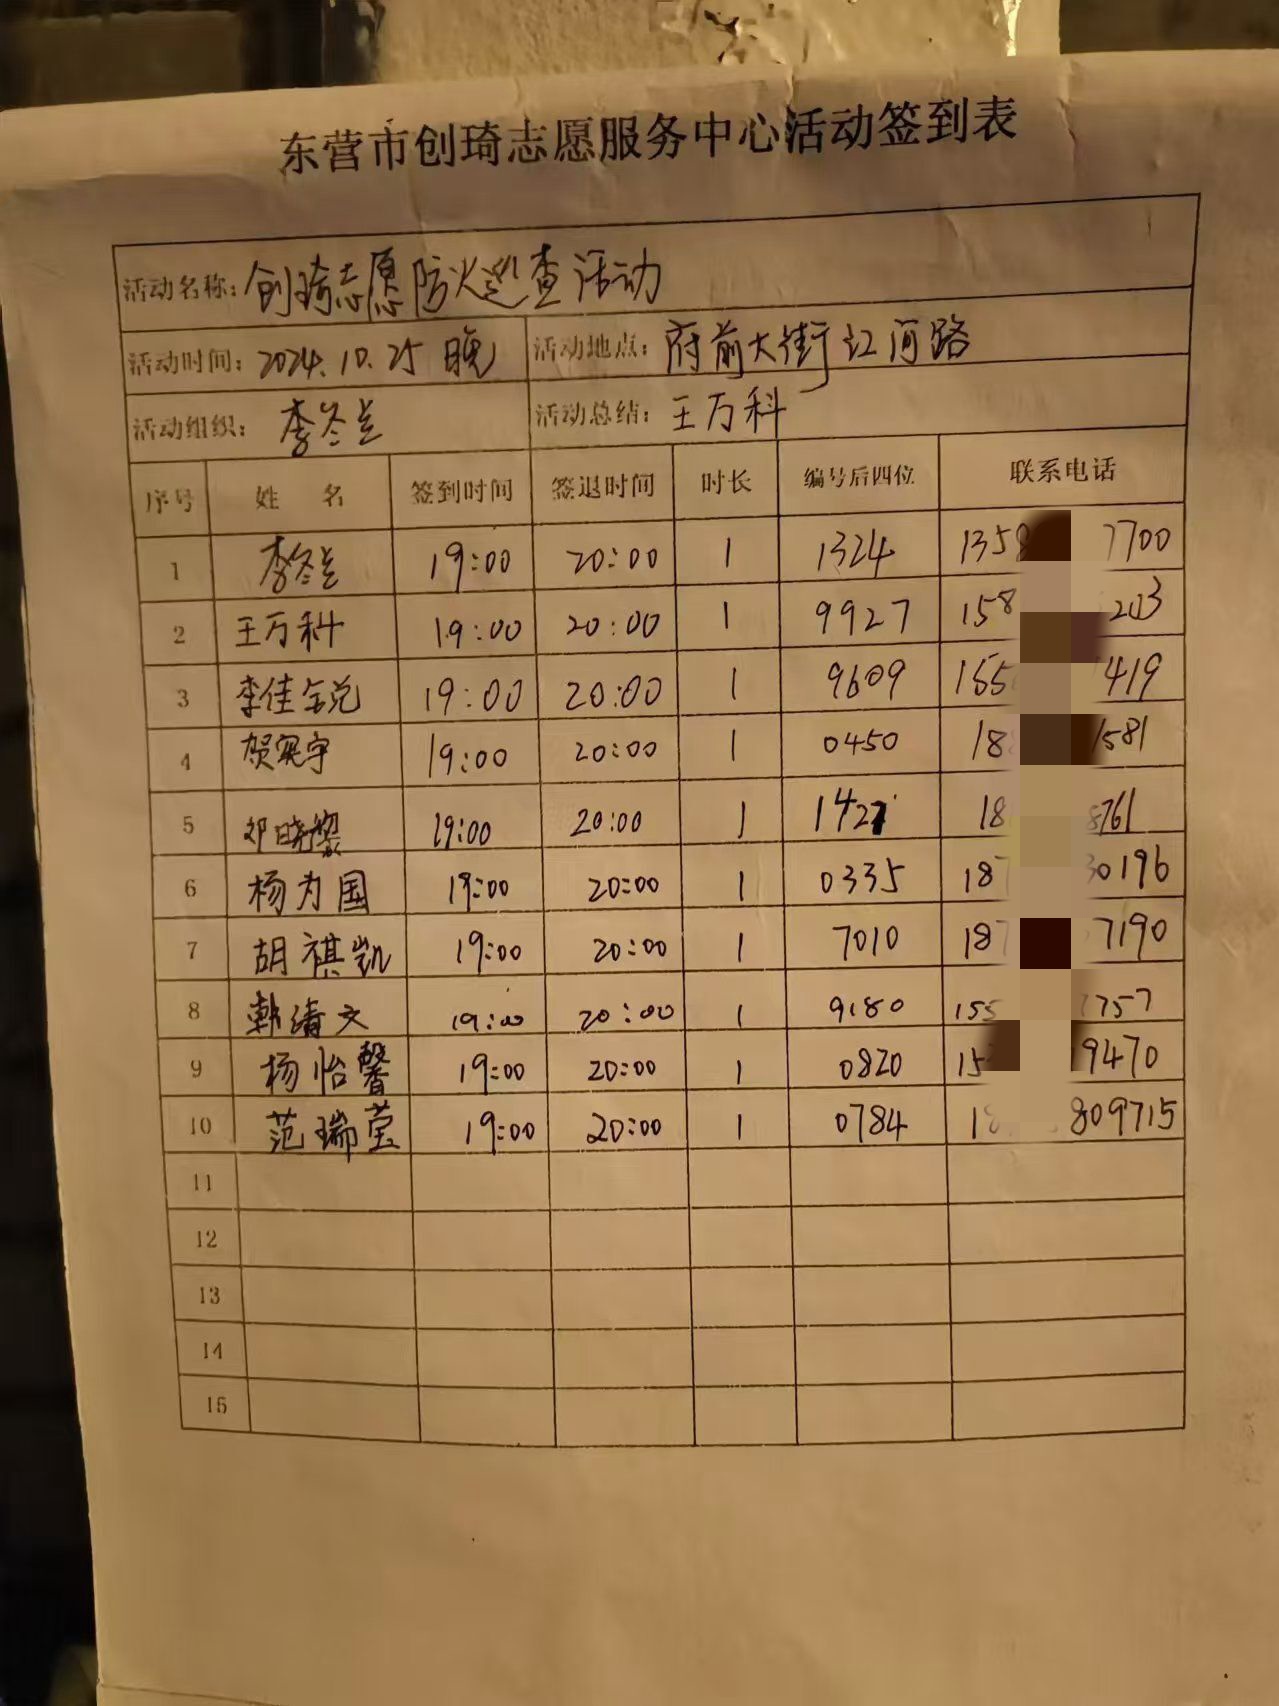 东营市创琦志愿服务中心活动签到表
活动名称：创琦志愿防火巡查活动
活动时间：2024.10.25 晚 活动地点：府前大街江河路
活动组织：李冬兰 活动总结：王万科
序号 姓 名 签到时间 签退时间 时长 编号后四位 联系电话
1 李冬兰 19:00 20:00 1 1324 1358 7700
2 王万科 19:00 20:00 1 9927 158 203
3 李佳锐 19:00 20:00 1 9609 155 419
4 贺宇 19:00 20:00 1 0450 18 1581
5 邓晓黎 19:00 20:00 1 1427 18 8761
6 杨为国 19:00 20:00 1 0335 187 30196
7 胡祺凯 19:00 20:00 1 7010 187 7190
8 韩清文 19:00 20:00 1 9180 155 7757
9 杨怡馨 19:00 20:00 1 0820 15 9470
10 范瑞莹 19:00 20:00 1 0784 18 809715
11
12
13
14
15